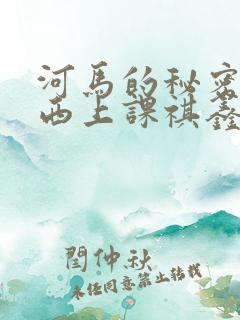 河馬的秘密
西上課祺鑫
閆仲秋
未経同意禁止转載